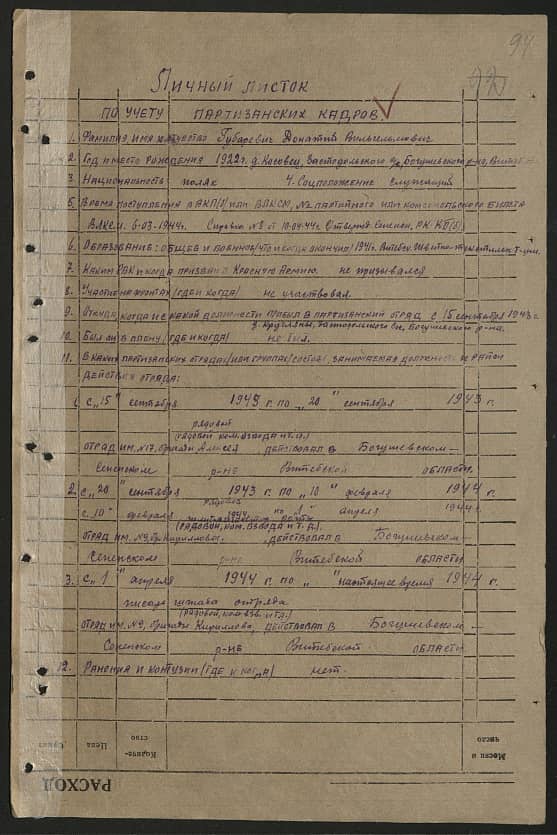 94
Личный листок
по учету партизанских кадров
1. Фамилия, имя отчество Губаревич Донатий Вильгельмович
2. Год и место рождения 1922 г. д. Косовец, Застодольского с/с, Богушевского р-на, Витебск.
3. Национальность поляк 4. Соцположение служащий
5. Время поступления в ВКП/б/ или ВЛКСМ, №2 партийного или комсомольского билета
ВЛКСМ. 6-03-1944г. Справка №8 от 10-04-44г. Сенненск. РК КП(б)
6. Образование: общее и военное/что и когда окончил/ 1941. Витебск.
7. Каким РВК и когда призван в Красную Армию. не призывался
8. Участие на фронтах /где и когда/ не участвовал.
9. Откуда, когда и с какой должности прибыл в партизанский отряд с 15 сентября 1943 г.
Богушевского р-на.
10. Был ли в плену /где и когда/ не был.
11. В каких партизанских отрядах/или группах/состоял, занимаемая должность и район
действия отряда:
1. с „15" сентября 1943 г. по „20" сентября 1943 г.
рядовой
(рядовой, ком. взвода и т.д.)
отряд им. №17, бригады Алексея действовал в Богушевском—
Сенненском р-не Витебской области.
2. с „20" сентября 1943 г. по „10" февраля 1944 г.
рядовой
с „10" февраля 1944г. по „1" апреля 1944г.
(рядовой, ком. взвода и т.д.)
отряд им. №9, бр. Кириллова. действовал в Богушевском—
Сенненском р-не Витебской области
3. с „1" апреля 1944 г. по „ " настоящее время 1944 г.
писарь штаба отряда
(рядовой, ком. взв. и т.д.)
отряд им. №9, бригады Кириллова, действовал в Богушевском—
Сенненском р-не Витебской области
12. Ранения и контузии /где и когда/ нет.
Месяц и число
Количе-ство
Цена
Сумма
РАСХОД